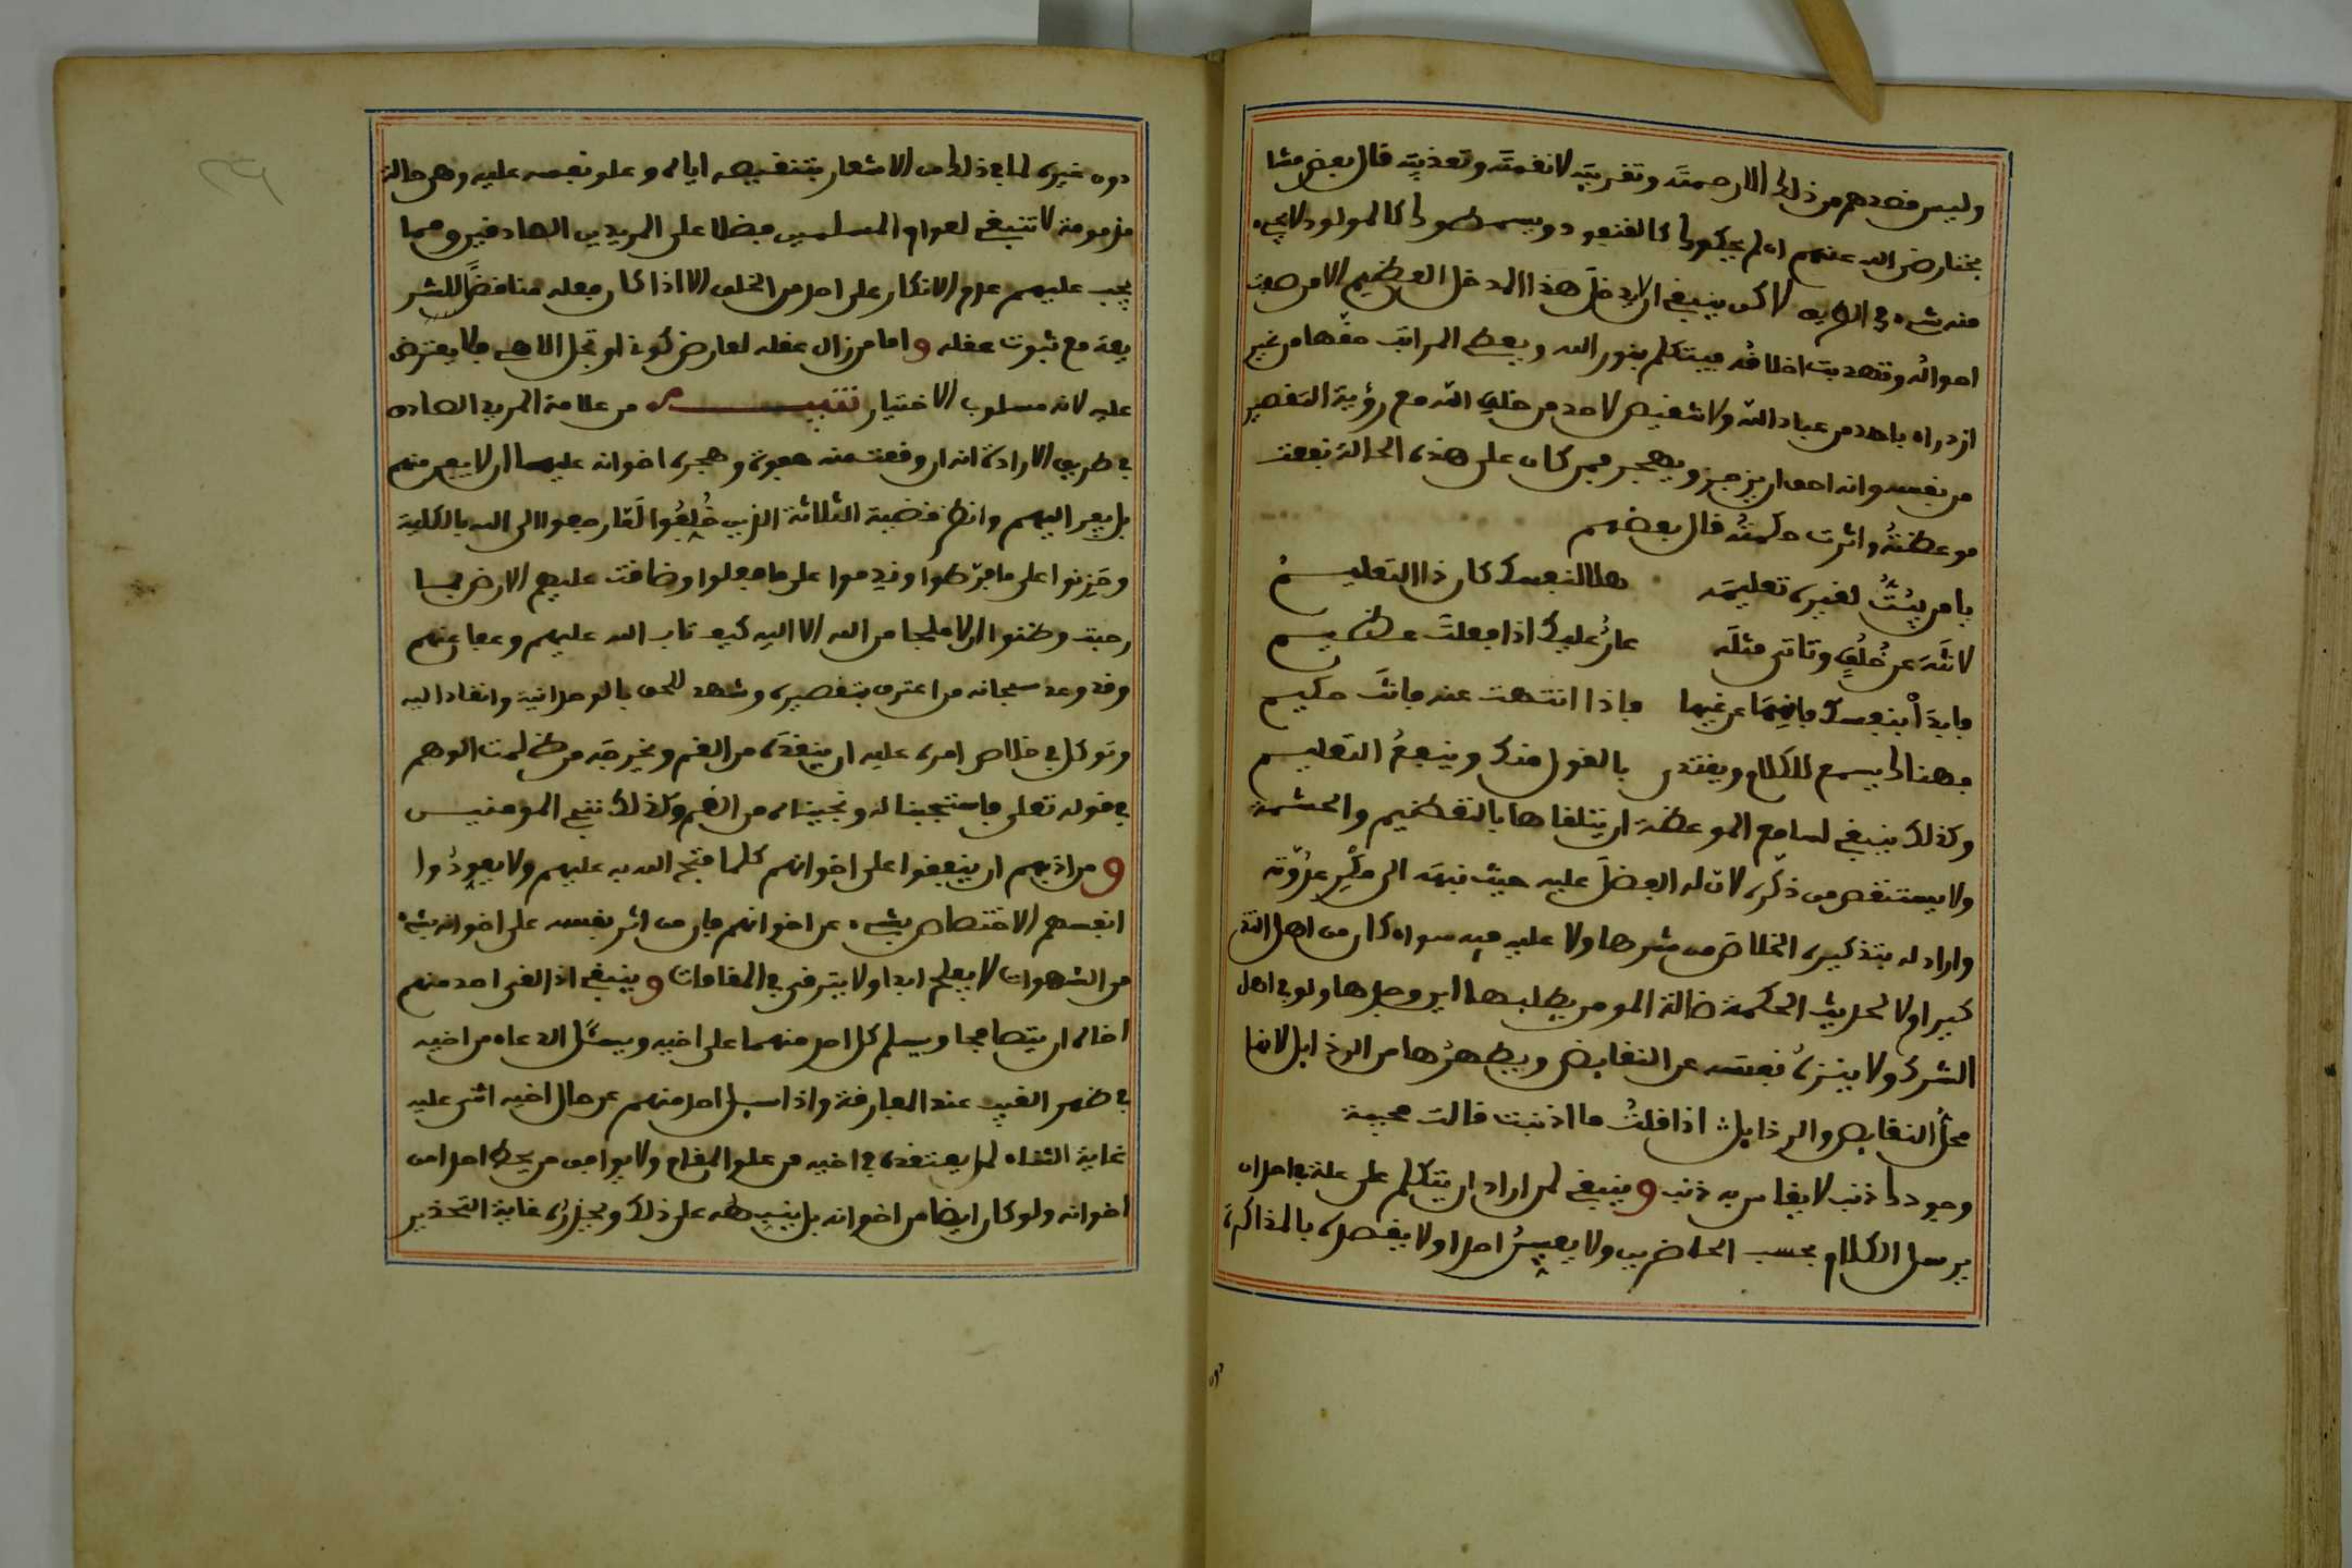 وليس قصدهم من ذلك الا رحمته وتقريبه لا نقمته وتعذيبه قال بعض مشا
يخنا رضي الله عنهم ان لم يجيكوك كالقنفود ويسمطوك كالمولود لا يجيء
منه شيء في الطريق لاكن ينبغي ان لا يدخل هذا المدخل العظيم الا من صفت
احواله وتهذبت اخلاقه فيتكلم بنور الله ويعطي المراتب حقها من غير
ازدراء باحد من عباد الله ولا تنقيص لاحد من خلق الله مع رؤية التقصير
من نفسه وانه احق ان يزجر ويهجر فمن كان على هذه الحالة نفعت
موعظته واثرت حكمته قال بعضهم
يا من يبث لغيره تعليمه هلا لنفسك كان ذا التعليم
لا تنه عن خلق وتاتي مثله عار عليك اذا فعلت عظيم
فابدأ بنفسك فانهها عن غيها فاذا انتهت عنه فانت حكيم
فهناك يسمع للكلام ويقتدى بالقول منك وينفع التعليم
وكذلك ينبغي لسامع الموعظة ان يتلقاها بالتعظيم والحشمة
ولا يستنقص من ذكره لان له الفضل عليه حيث نبهه الى مكر عدوه
واراد له بتذكيره الخلاص من شرها ولا عليه فيه سواء كان من اهل التذ
كير اولا لحديث الحكمة ضالة المومن يطلبها اين وجدها ولو في اهل
الشرك ولا ينزه نفسه عن النقايص ويطهرها من الرذايل لانها
محل النقايص والرذايل اذا قلت ما اذنبت قالت مجيبة
وجودك ذنب لا يقاس به ذنب وينبغي لمن اراد ان يتكلم على علة في احد ان
يرسل الكلام بحسب الحاضرين ولا يعين احدا ولا يقصده بالمذاكرة
دون
دون غيره لما في ذلك من الاشعار بتنقيصه اياه وعلو نفسه عليه وهي حالة
مذمومة لا تنبغي لعوام المسلمين فضلا على المريدين الصادقين ومما
يجب عليهم عدم الانكار على احد من الخلق الا اذا كان فعله مناقضا للشر
يعة مع ثبوت عقله واما من زال عقله لعارض كوني او تجل الاهي فلا يعترض
عليه لانه مسلوب الاختيار تنبيه من علامة المريد الصادق
في طريق الارادة انه ان وقعت منه هفوة وهجره اخوانه عليها ان لا يفر منهم
بل يفر اليهم وانظر قضية الثلاثة الذين خلفوا لما رجعوا الى الله بالكلية
وحزنوا على ما فرطوا وندموا على ما فعلوا وضاقت عليهم الارض بما
رحبت وظنوا ان لا ملجا من الله الا اليه كيف تاب الله عليهم وعفا عنهم
وقد وعد سبحانه من اعترف بتقصيره وشهد للحق بالوحدانية وانقاد اليه
وتوكل في خلاص امره عليه ان ينقذه من الغم ويخرجه من ظلمت الوهم
في قوله تعلى فاستجبنا له ونجيناه من الغم وكذلك ننجي المومنين
ومن ادبهم ان ينفقوا على اخوانهم كلما فتح الله به عليهم ولا يعودوا
انفسهم الاختصاص بشيء عن اخوانهم فان من اثر نفسه على اخوانه بشيء
من الشهوات لا يفلح ابدا ولا يترقى في المقامات وينبغي اذا لقي احد منهم
اخاه ان يتصافحا ويسلم كل احد منهما على اخيه ويسئل الدعاء من اخيه
في ظهر الغيب عند المفارقة واذا سيل احد منهم عن حال اخيه اثنى عليه
غاية الثناء لما يعتقده في اخيه من علو المقام ولا يوافق من يحط احدا من
اخوانه ولو كان ايضا من اخوانه بل يثبطه على ذلك ويحذره غاية التحذير